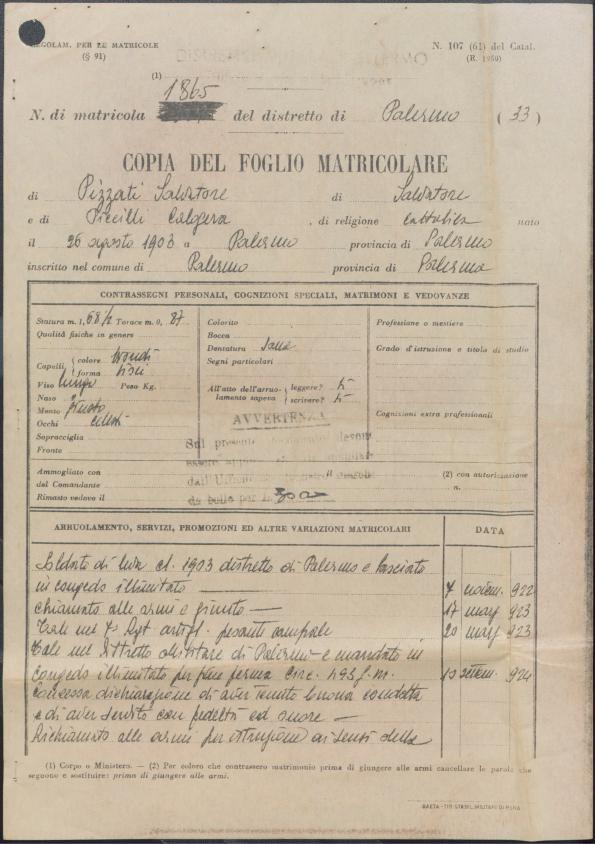 REGOLAM. PER LE MATRICOLE
(§ 91)
N. 107 (61) del Catal.
(R. 1950)
(1)
1865
N. di matricola del distretto di Palermo (33)
COPIA DEL FOGLIO MATRICOLARE
di Pizzati Salvatore di Salvatore
e di Piccilli Calogera, di religione cattolica nato
il 26 agosto 1903 a Palermo provincia di Palermo
inscritto nel comune di Palermo provincia di Palermo
CONTRASSEGNI PERSONALI, COGNIZIONI SPECIALI, MATRIMONI E VEDOVANZE
Statura m. 1, 68 1/2 Torace m. 0, 87
Qualità fisiche in genere
Capelli colore biondi
forma lisci
Viso lungo Peso Kg.
Naso
Mento giusto
Occhi celesti
Sopracciglia
Fronte
Colorito
Bocca
Dentatura sana
Segni particolari
All'atto dell'arruolamento sapeva leggere? si
scrivere? si
Professione o mestiere
Grado d'istruzione e titolo di studio
Cognizioni extra professionali
AVVERTENZA
Sul presente
da bollo per L.
Ammogliato con il (2) con autorizzazione
del Comandante n.
Rimasto vedovo il
ARRUOLAMENTO, SERVIZI, PROMOZIONI ED ALTRE VARIAZIONI MATRICOLARI
DATA
Soldato di leva cl. 1903 distretto di Palermo e lasciato
in congedo illimitato 7 novem. 922
chiamato alle armi e giunto 17 magg 923
Tale nel Rgt artigl. pesante campale 20 magg 923
Tale nel Distretto Militare di Palermo e mandato in
congedo illimitato per fine ferma circ. 493 g. m. 10 settem. 924
Concessa dichiarazione di aver tenuto buona condotta
e di aver servito con fedeltà ed onore
Richiamato alle armi per istruzione ai sensi della
(1) Corpo o Ministero. — (2) Per coloro che contrassero matrimonio prima di giungere alle armi cancellare le parole che
seguono e sostituire: prima di giungere alle armi.
GAETA - TIP. STABIL. MILITARI DI PENA